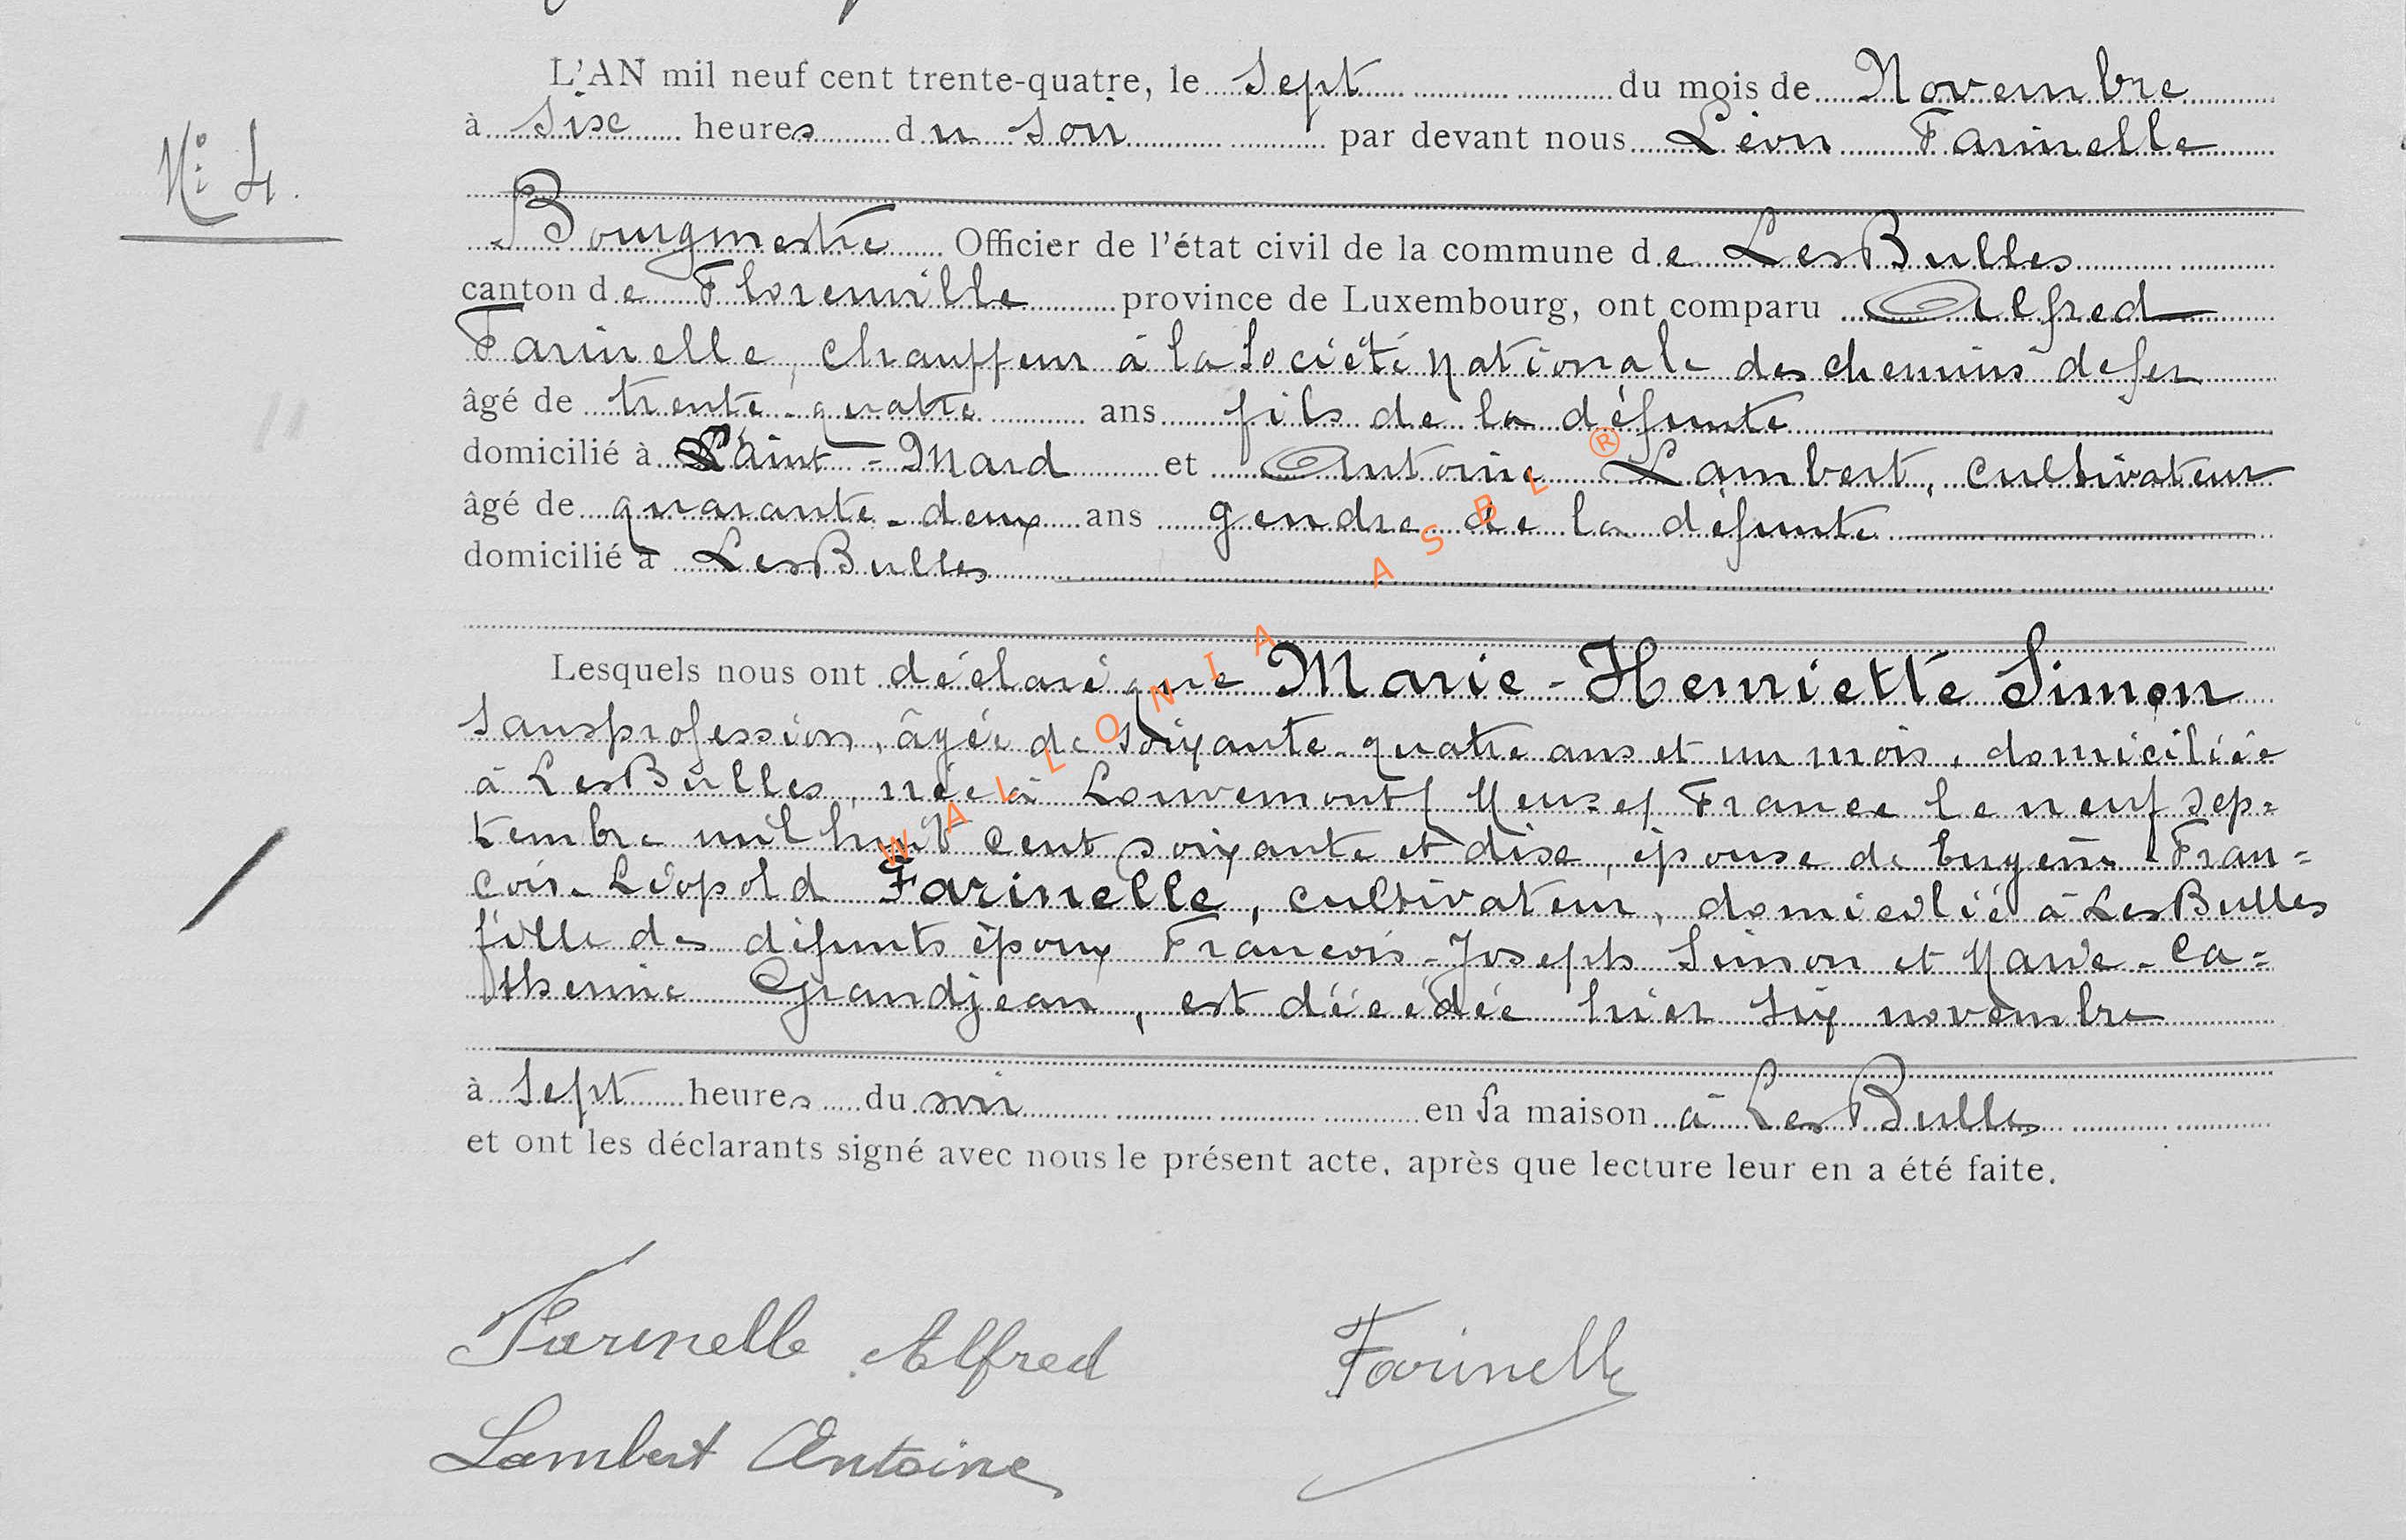 L'AN mil neuf cent trente-quatre, le sept du mois de Novembre
à sise heures du soir par devant nous Léon Farinelle
N° 4.
Bourgmestre Officier de l'état civil de la commune de LesBulles
canton de Florenville province de Luxembourg, ont comparu Alfred
Farinelle, chauffeur à la Société Nationale des chemins defer
âgé de trente-quatre ans fils de la défunte
domicilié à Saint-Mard et Antoine Lambert, cultivateur
âgé de quarante-deux ans gendre de la défunte
domicilié à LesBulles
Lesquels nous ont déclaré que Marie-Henriette Simon
sans profession, âgée de soixante-quatre ans et un mois, domiciliée
à LesBulles, née à Louvemont (Meuse) France le neuf sep=
tembre mil huit cent soixante et dise, épouse de Eugène Fran=
cois-Léopold Farinelle, cultivateur, domicilié à LesBulles
fille des défunts époux Francois-Joseph Simon et Marie-Ca=
therine Grandjean, est décédée hier six novembre
à sept heures du soir en sa maison à LesBulles
et ont les déclarants signé avec nous le présent acte, après que lecture leur en a été faite.
Farinelle Alfred Farinelle
Lambert Antoine
WALLONIA ASBL ®